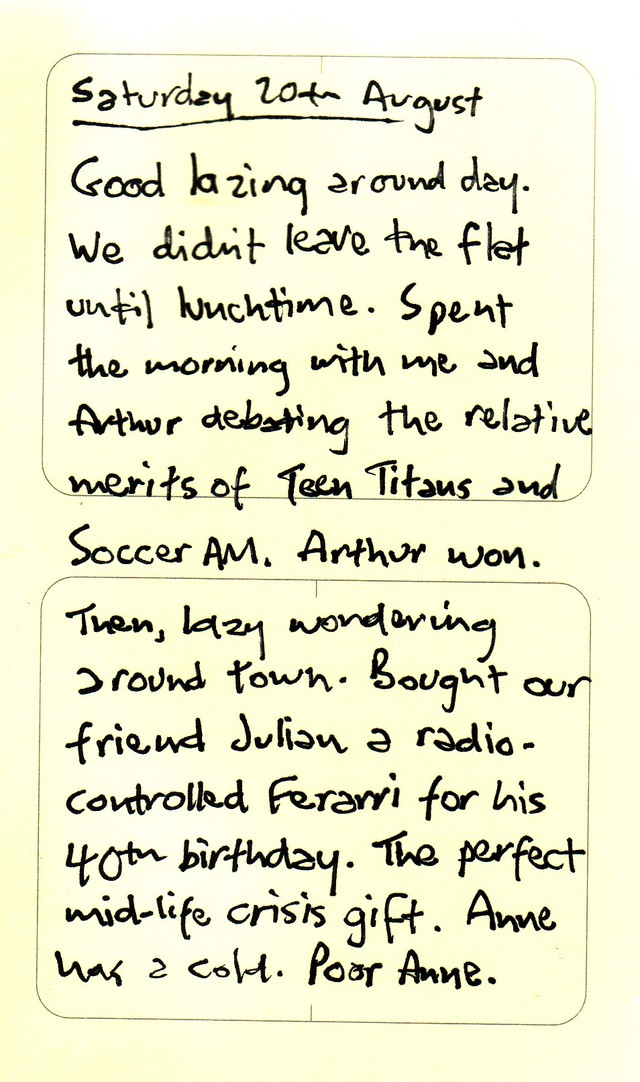 Saturday 20th August
Good lazing around day.
We didn't leave the flat
until lunchtime. Spent
the morning with me and
Arthur debating the relative
merits of Teen Titans and
Soccer AM. Arthur won.
Then, lazy wondering
around town. Bought our
friend Julian a radio-
controlled Ferarri for his
40th birthday. The perfect
mid-life crisis gift. Anne
has a cold. Poor Anne.